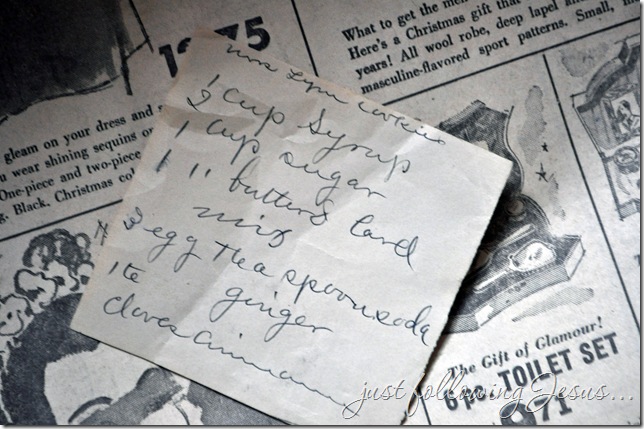 What to get the men
Here's a Christmas gift that
years! All wool robe, deep lapel and
masculine-flavored sport patterns. Small,
gleam on your dress and
wear shining sequins or
One-piece and two-piece
Black. Christmas
Mrs Cookies
1 Cup Syrup
1 cup sugar
1 " butter & lard
mix
2 egg 1 teaspoon soda
1 te ginger
cloves cinnamon
The Gift of Glamour!
6 pc. TOILET SET
971
just following Jesus...